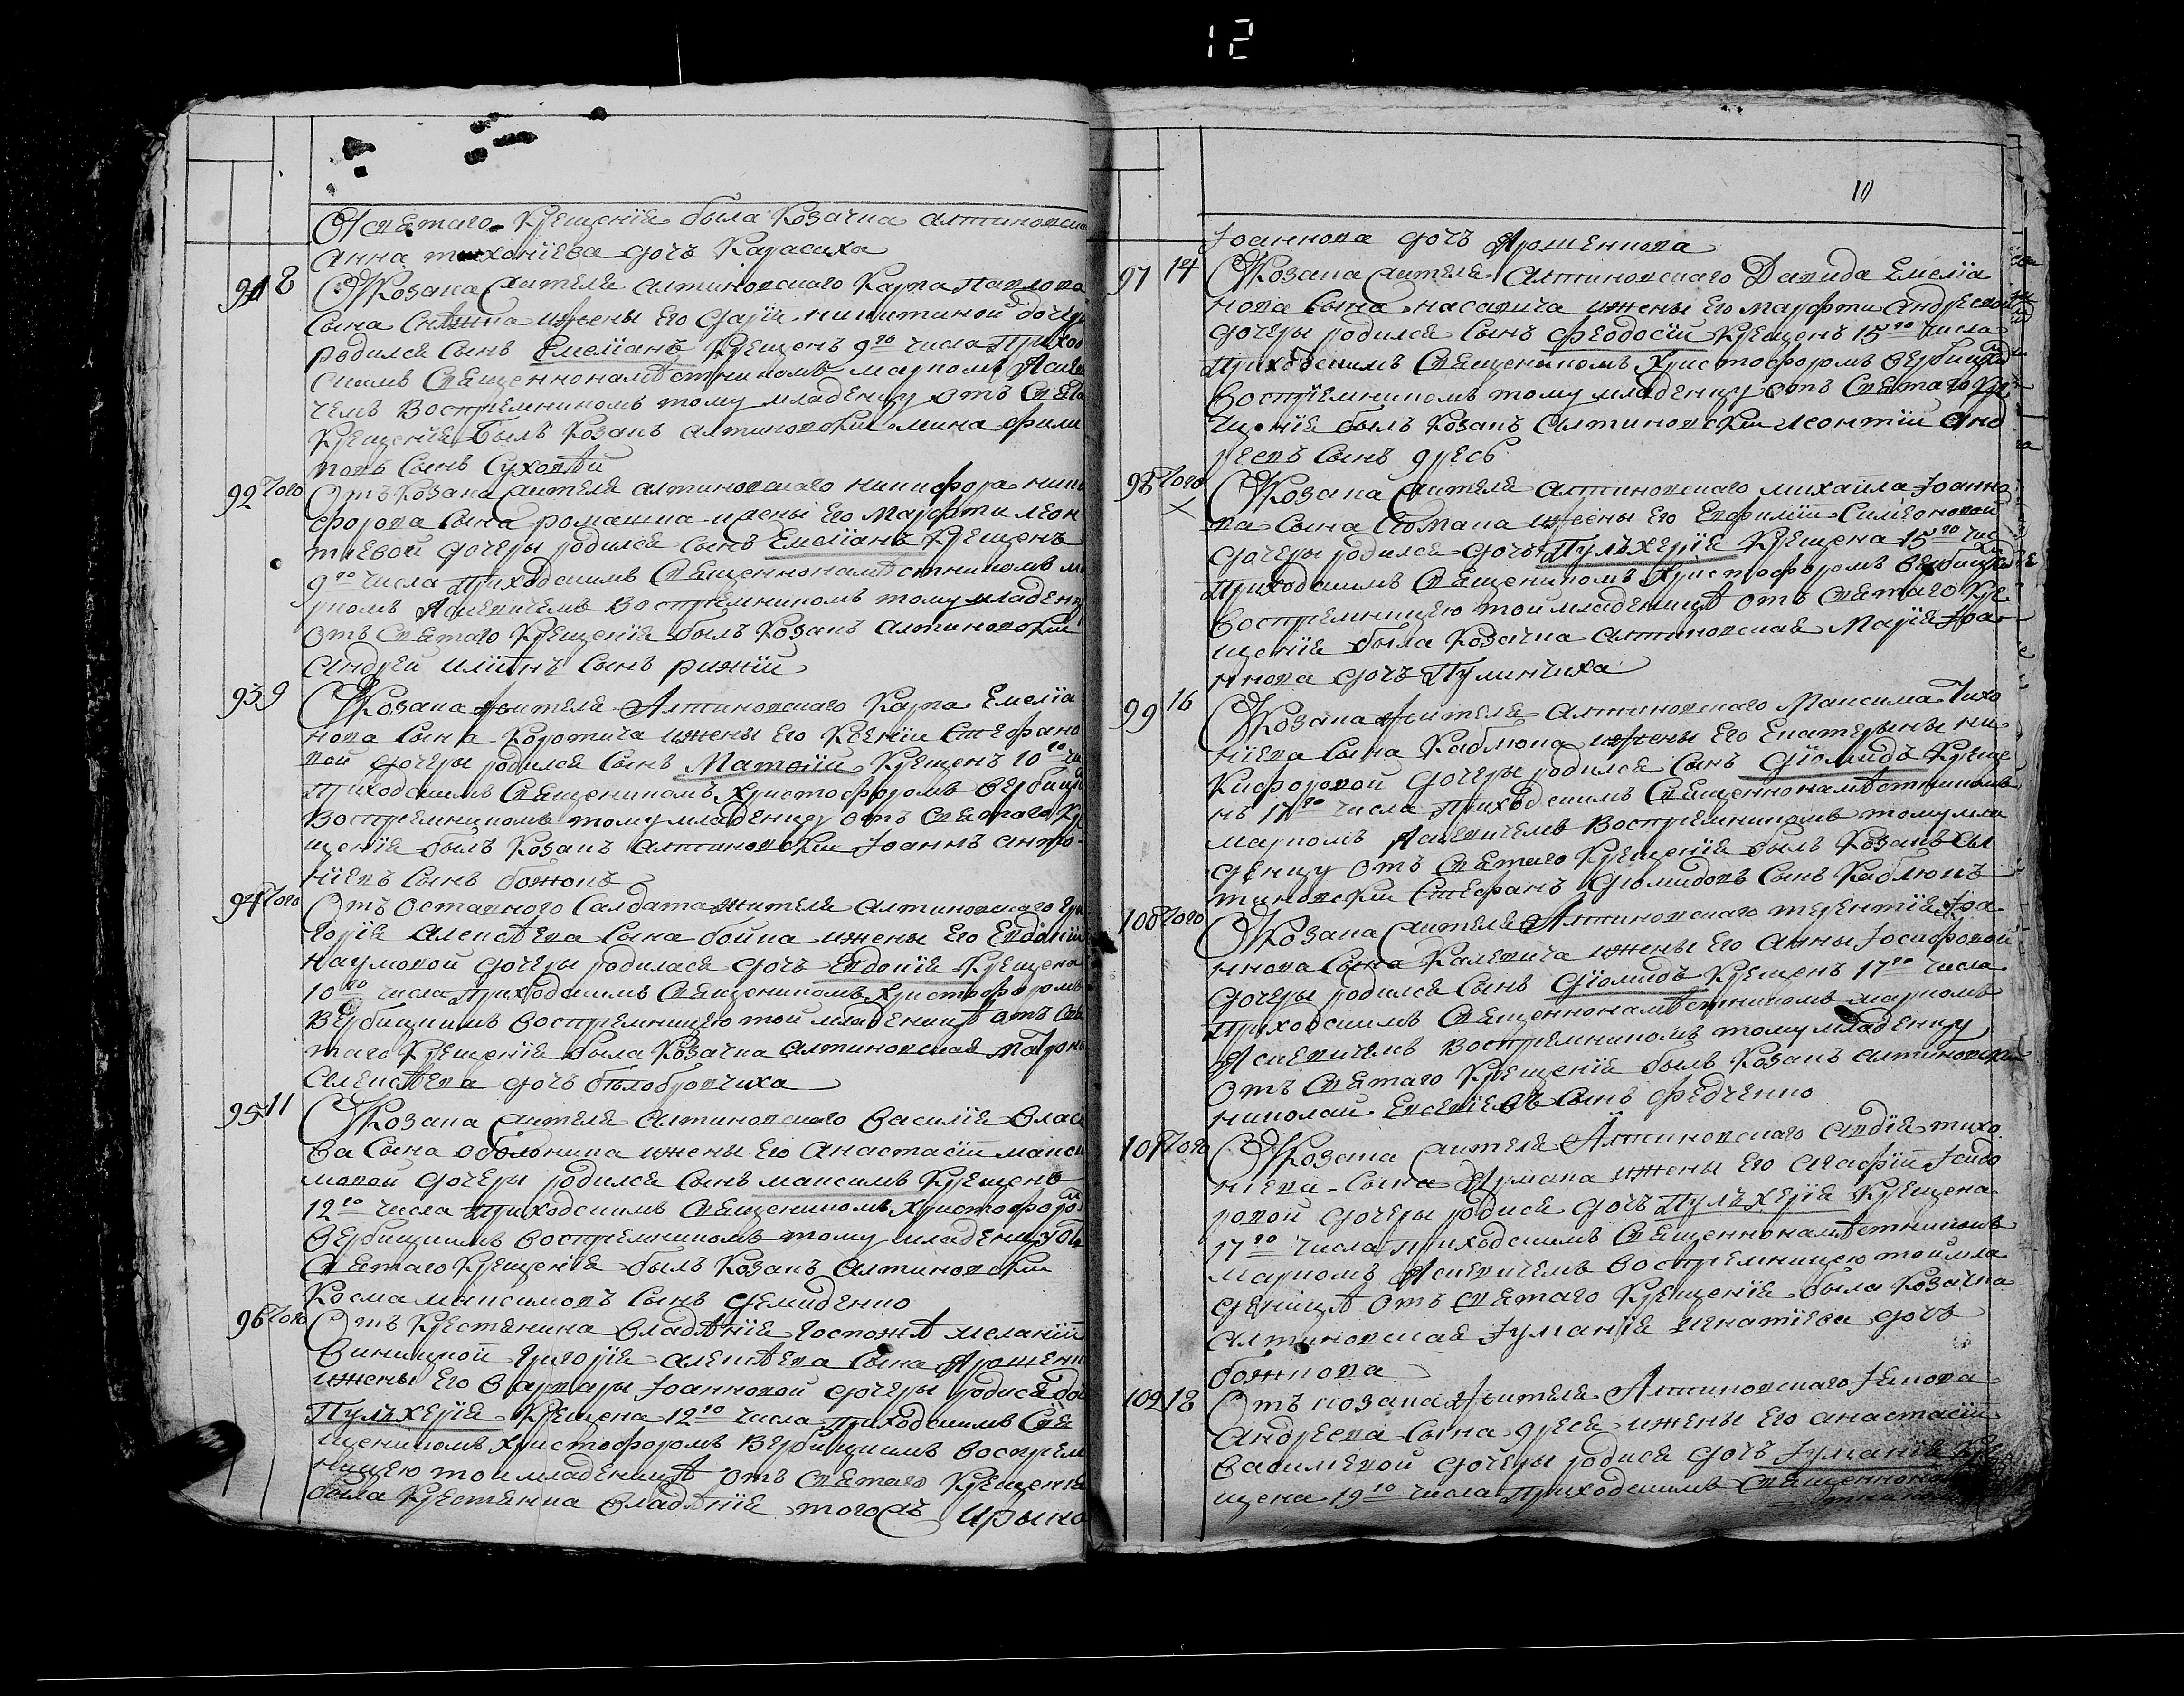 12
11
Отъ святаго Крещенія была Козачка алтиновска
анна тихоніева дочъ Карасиха
91 8 Укозака жителя алтиновскаго Карпа павлова
Сына ижены Его Дарїи никитиной дочеры
родился Сынъ Емеліанъ Крещенъ 9го числа Приход
скимъ Священнонамѣстникомъ маркомъ Яснев
чемъ Воспрiемникомъ тому младенцу отъ Свята
Крещенія былъ Козакъ алтиновскiи мина фили
повъ Сынъ Суховѣй
92 Того Отъ Козака жителя алтиновскаго никифора ники
форова Сына ромашка ижены Его Марфти леон
тиевой дочеры родился Сынъ Емеліанъ Крещенъ
9го числа Приходскимъ Священнонамѣстникомъ ма
ркомъ Воспрiемникомъ тому младенцу
Отъ Святаго Крещенія былъ Козакъ алтиновскiи
Андрей иліинъ Сынъ рижій
93 9 Укозака жителя Алтиновскаго Карпа Емелїа
нова Сына Коротича ижены Его Ксеніи Стефано
вой дочеры родился Сынъ Матѳій Крещенъ 10го чи
Приходскимъ Священикомъ Христофоромъ Вербицки
Воспрiемникомъ тому младенцу Отъ Святаго Кре
щенія былъ Козакъ алтиновскiи Іоаннъ антю
нiевъ Сынъ божокъ
94 Того Отъ Оставного Салдата жителя алтиновскаго Гри
горїя алексѣева Сына бойка ижены Его Евдокіи
наумовой дочеры родилася дочъ Евдокія Крещена
10го числа Приходскимъ Священикомъ Христофоромъ
Вербицкимъ Воспрiемницею той младеницѣ отъ Свя
таго Крещенія была Козачка алтиновская Матрона
алексѣева дочъ билобровчиха
95 11 Укозака жителя алтиновскаго Василїя Влас
ва Сына оболоника ижены Его анастасїи макси
мовой дочеры родился Сынъ максимъ Крещенъ
12го числа Приходскимъ Священикомъ Христофоро
Вербицкимъ Воспрiемникомъ тому младенцу отъ
Святаго Крещенія былъ Козакъ алтиновскiи
Косма максимовъ Сынъ демиденко
96 Того Отъ Крестянина владѣнія госпожѣ меланїи
Виницкой Григорїя алексѣева Сына Ярошенк
ижены Его Варвары Іоанновой дочеры родися до
Пулъхерїя Крещена 12го числа Приходскимъ Свя
щеникомъ Христофоромъ Вербицкимъ Воспрiем
ницею той младеницѣ отъ Святаго Крещенія
была Крестянка владѣнія тогожъ Ирына
Іоаннова дочъ Ярошенкова
97 14 Укозака жителя Алтиновскаго Давида Емелїа
нова Сына насавича ижены Его марфти андреевой
дочеры родился Сынъ Феодосій Крещенъ 15го числа
Приходскимъ Священикомъ Христофоромъ Вербицки
Воспрiемникомъ тому младенцу отъ Святаго Кре
щенія былъ Козакъ алтиновскiи леонтій анд
реевъ Сынъ дресь
98 Того Укозака жителя алтиновскаго михаила Іоанно
× ва Сына ижены Его Евфимїи Симеоновой
дочеры родися дочъ Пулъхерїя Крещена 15го чис
Приходскимъ Священикомъ Христофоромъ Вербицки
Воспрiемницею той младеницѣ отъ Святаго Кре
щенія была Козачка алтиновская Марїя Іоа
ннова дочъ Пулинчиха
99 16 Укозака жителя алтиновскаго Максима Тихо
нїева Сына Каблюка ижены Его Екатерыны ни
кифоровой дочеры родился Сынъ Дїомидъ Креще
нъ 17го числа Приходскимъ Священнонамѣстникомъ
маркомъ Воспрiемникомъ тому мла
денцу Отъ Святаго Крещенія былъ Козакъ ал
тиновскiи Стефанъ Дїомидовъ Сынъ Каблюкъ
100 Того Укозака жителя Алтиновскаго терентїя Іоа
ннова Сына Калевича ижены Его анны Іосифовой
дочеры родился Сынъ Дїомидъ Крещенъ 17го числа
Приходскимъ Священнонамѣстникомъ маркомъ
Воспрiемникомъ тому младенцу
Отъ Святаго Крещенія былъ Козакъ алтиновскiи
николай Евсевїевъ Сынъ Федченко
101 Того Укозака жителя Алтиновскаго авдїя тихо
нїева Сына ижены Его агафїи Ісидо
ровой дочеры родися дочъ Пулъхерїя Крещена
17го числа Приходскимъ Священнонамѣстникомъ
маркомъ Воспрiемницею той мла
деницѣ отъ Святаго Крещенія была Козачка
алтиновская Іулианїя игнатїева дочъ
божкова
102 18 Отъ козака жителя Алтиновскаго Іякова
андреева Сына дреся ижены Его анастасїи
Васильевой дочеры родися дочъ Іулианїя Кре
щена 19го числа Приходскимъ Священнонамѣ
стником